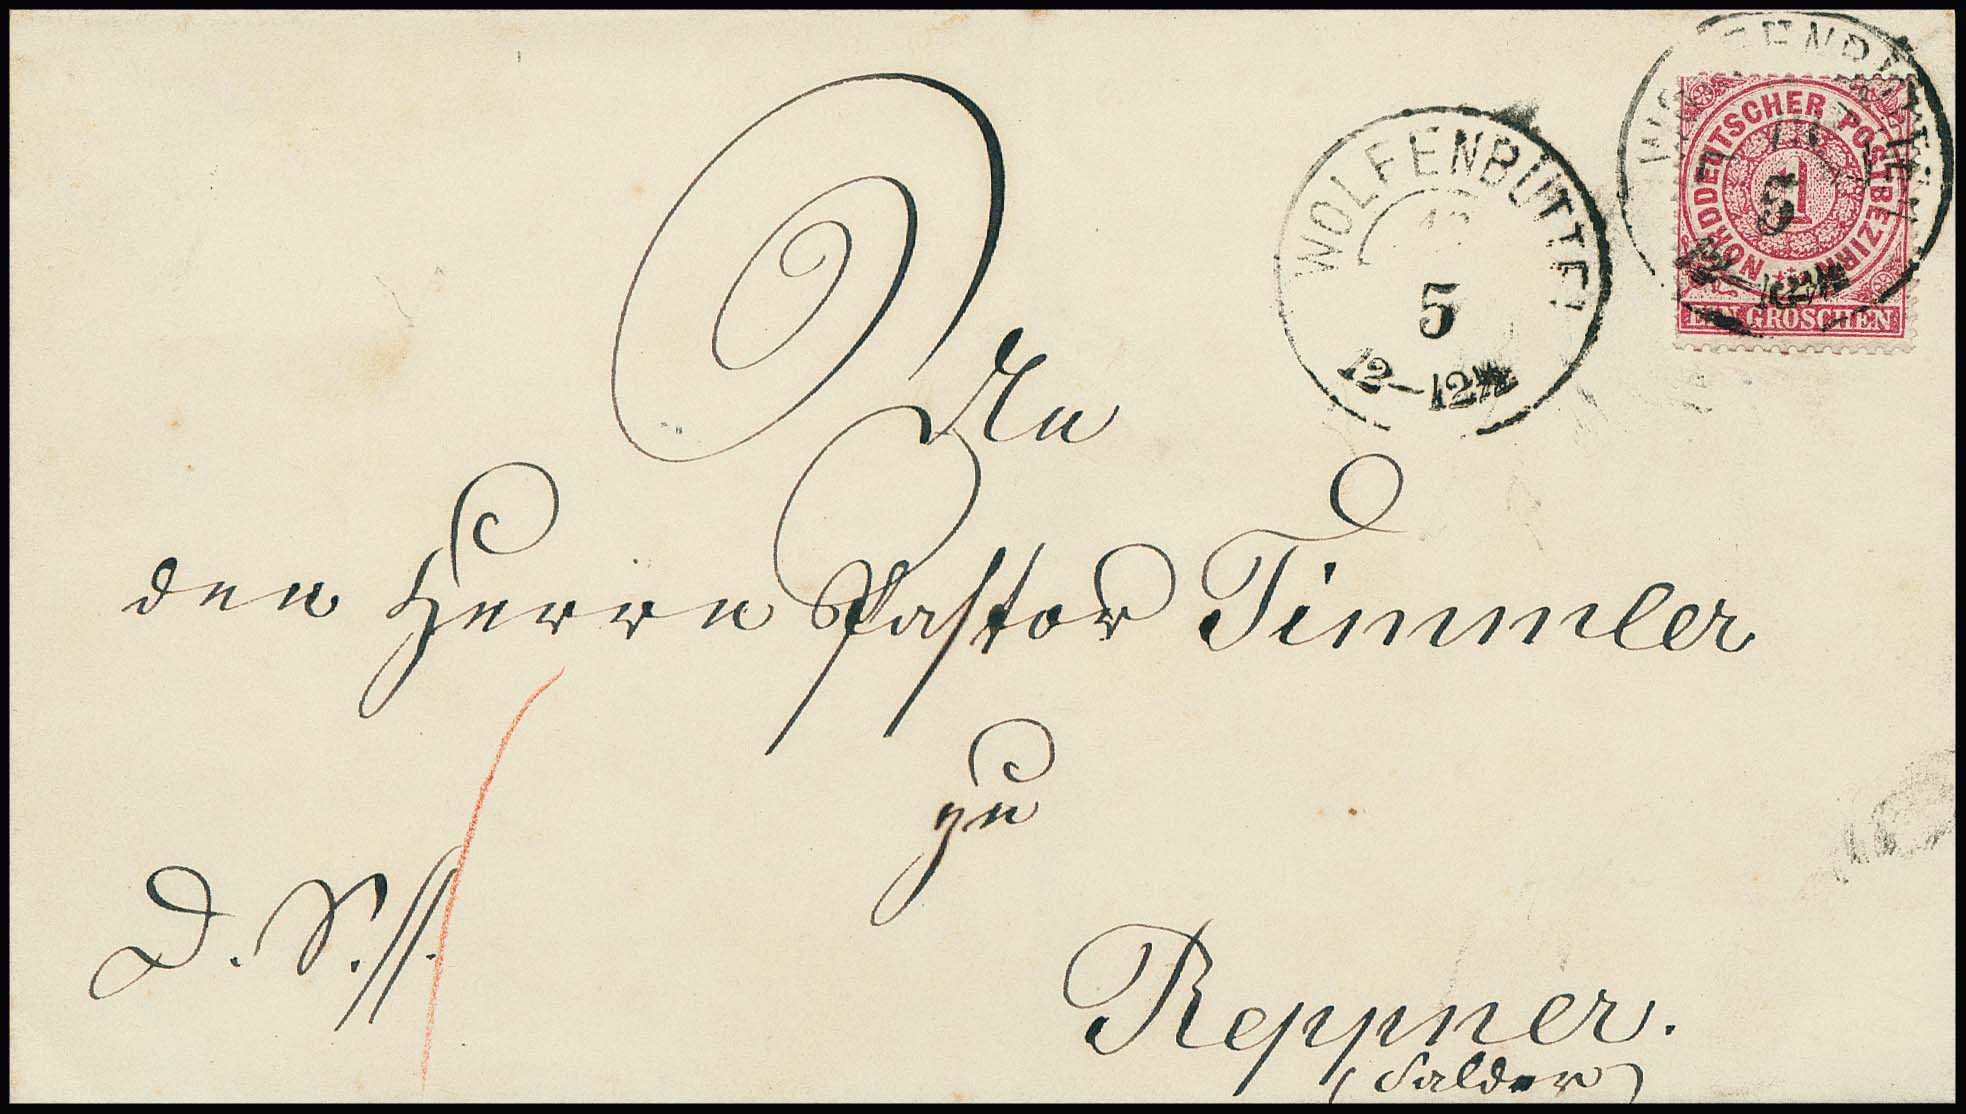 WOLFENBÜTTEL
5
12–12½
NORDDEUTSCHER POSTBEZIRK
1
EIN GROSCHEN
WOLFENBÜTTEL
5
An
den Herrn Pastor Timmler
zu
D. S.
Reppner.
(Salder)